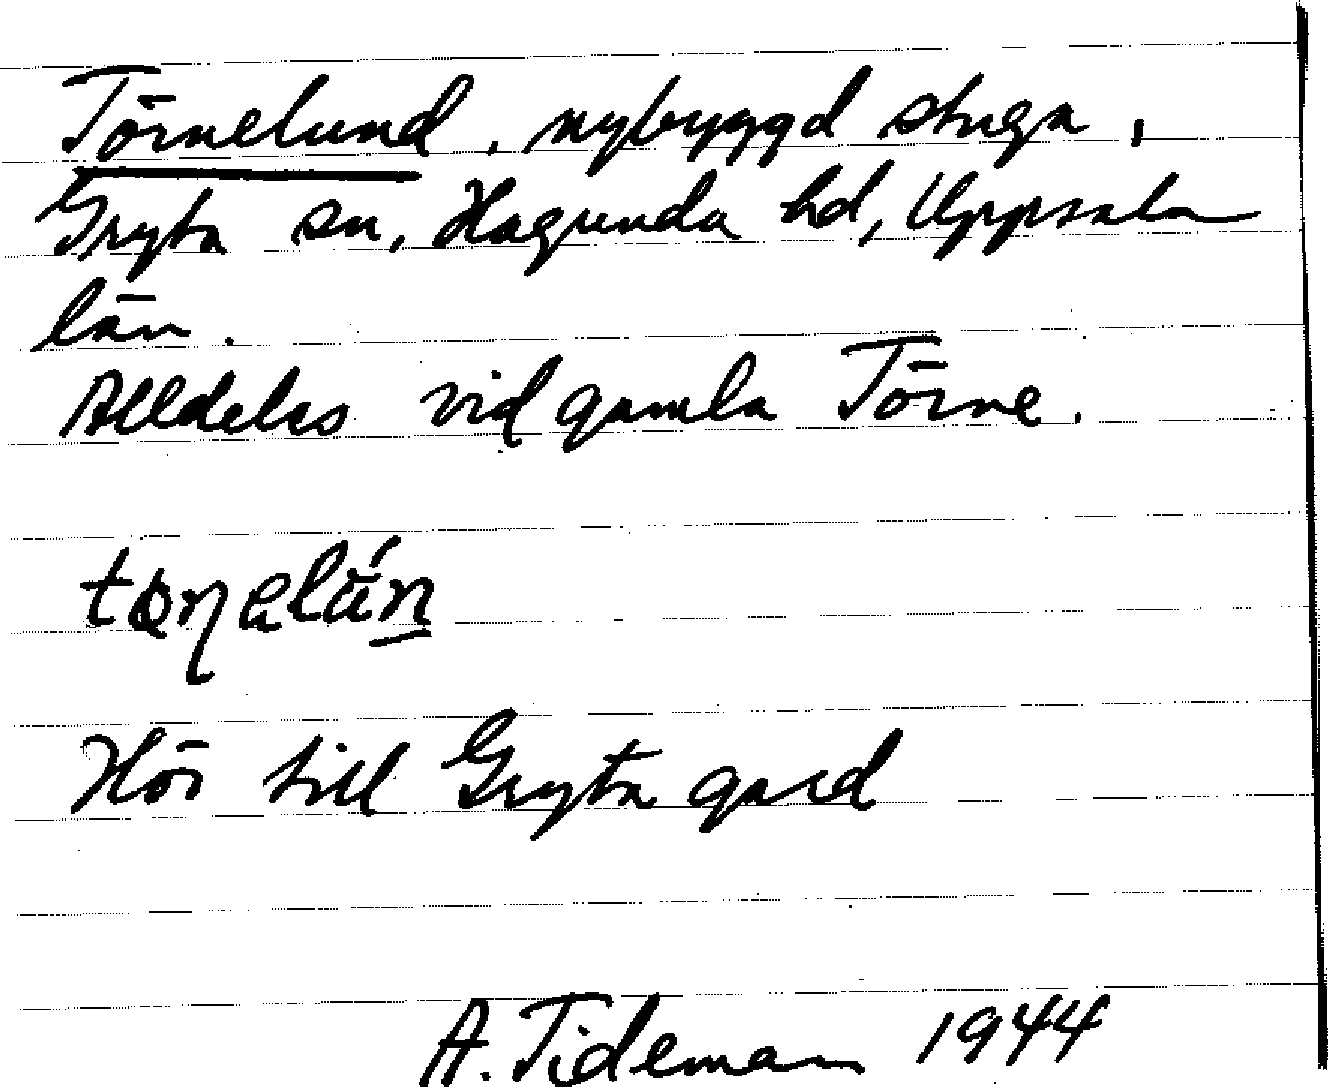 Törnelund, nybyggd stuga,
Gryta sn, Hagunda hd, Uppsala
län.
Alldeles vid gamla Törne.
Hör till Gryta gard
A. Tideman 1944